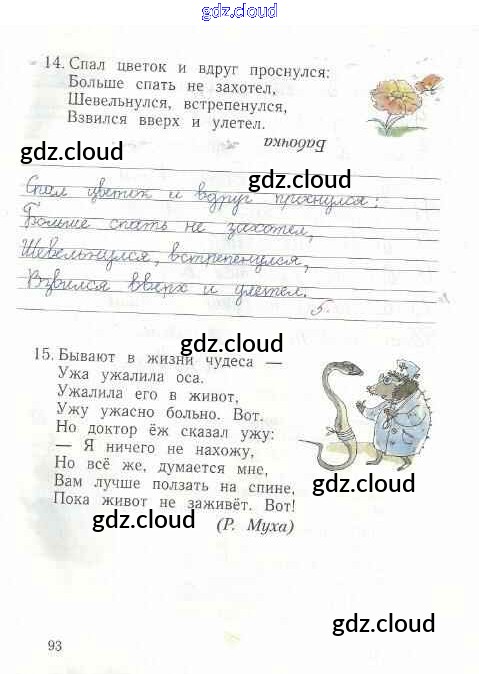 gdz.cloud
14. Спал цветок и вдруг проснулся:
Больше спать не захотел,
Шевельнулся, встрепенулся,
Взвился вверх и улетел.
Бабочка
gdz.cloud
gdz.cloud
Спал цветок и вдруг проснулся:
Больше спать не захотел,
Шевельнулся, встрепенулся,
Взвился вверх и улетел.
5.
gdz.cloud
15. Бывают в жизни чудеса —
Ужа ужалила оса.
Ужалила его в живот,
Ужу ужасно больно. Вот.
Но доктор ёж сказал ужу:
— Я ничего не нахожу,
Но всё же, думается мне,
Вам лучше ползать на спине,
Пока живот не заживёт. Вот!
(Р. Муха)
gdz.cloud
gdz.cloud
gdz.cloud
93